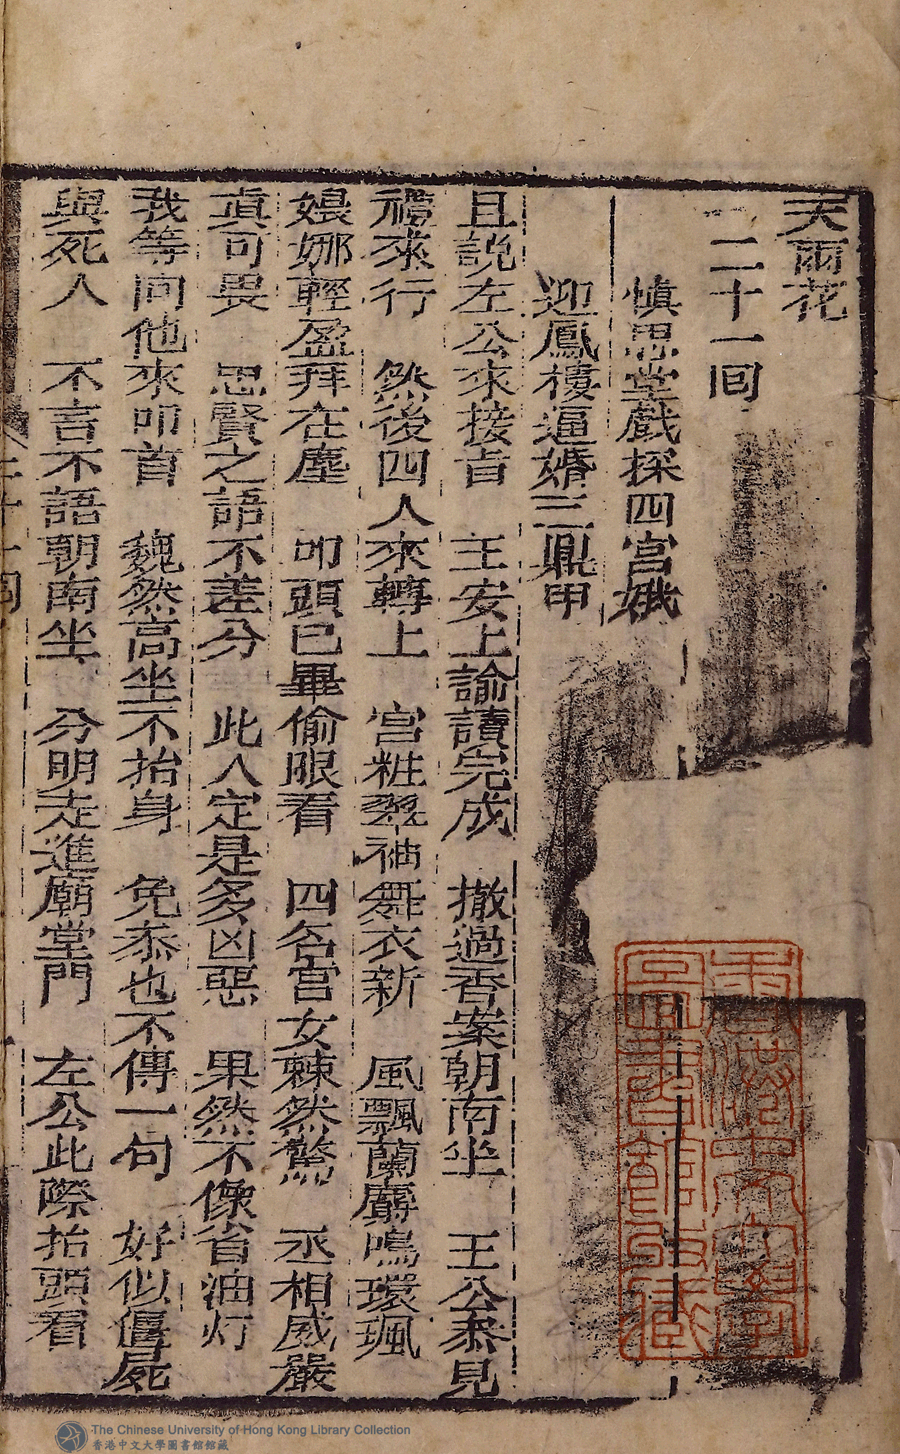 天雨花
二十一回
慎思堂戲探四宮娥
迎鳳樓逼婚三鼎甲
且說左公來接旨　王安上諭讀完成　撤過香案朝南坐　王公叅見
禮來行　然後四人來轉上　宮粧翠袖舞衣新　風飄蘭麝鳴環珮
嬝娜輕盈拜在塵　叩頭已畢偷眼看　四名宮女竦然驚　丞相威嚴
真可畏　思賢之語不差分　此人定是多凶惡　果然不像省油灯
我等同他來叩首　魏然高坐不抬身　免叅也不傳一句　好似僵屍
與死人　不言不語朝南坐　分明走進廟堂門　左公此際抬頭看
香港中文大學
圖書館收藏
The Chinese University of Hong Kong Library Collection
香港中文大學圖書館館藏